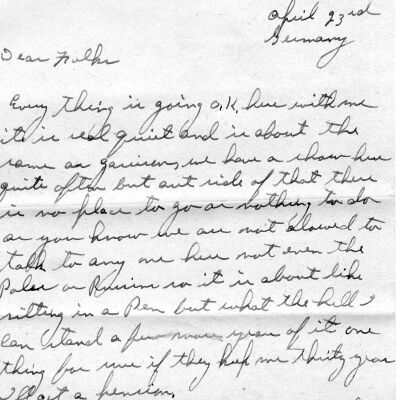 April 23rd
Germany
Dear Folks
Every thing is going o.k. here with me
it is real quiet and is about the
same as garrison, we have a show here
quite often but out side of that there
is no place to go or nothing to do
as you know we are not alowed to
talk to any one here not even the
Poles or Russians so it is about like
sitting in a Pen but what the hell I
can stand a few more years of it one
thing for sure if they keep me thirty years
I'll get a pension.